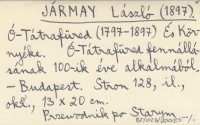 JÁRMAY László (1897).
Ó-Tátrafüred (1797-1897) És Kör-
nyéke. Ó-Tátrafüred fennállá-
sának 100-ik éve alkalmából.
– Budapest. Stron 128, il.,
okl., 13 x 20 cm.
Przewodnik po Starym